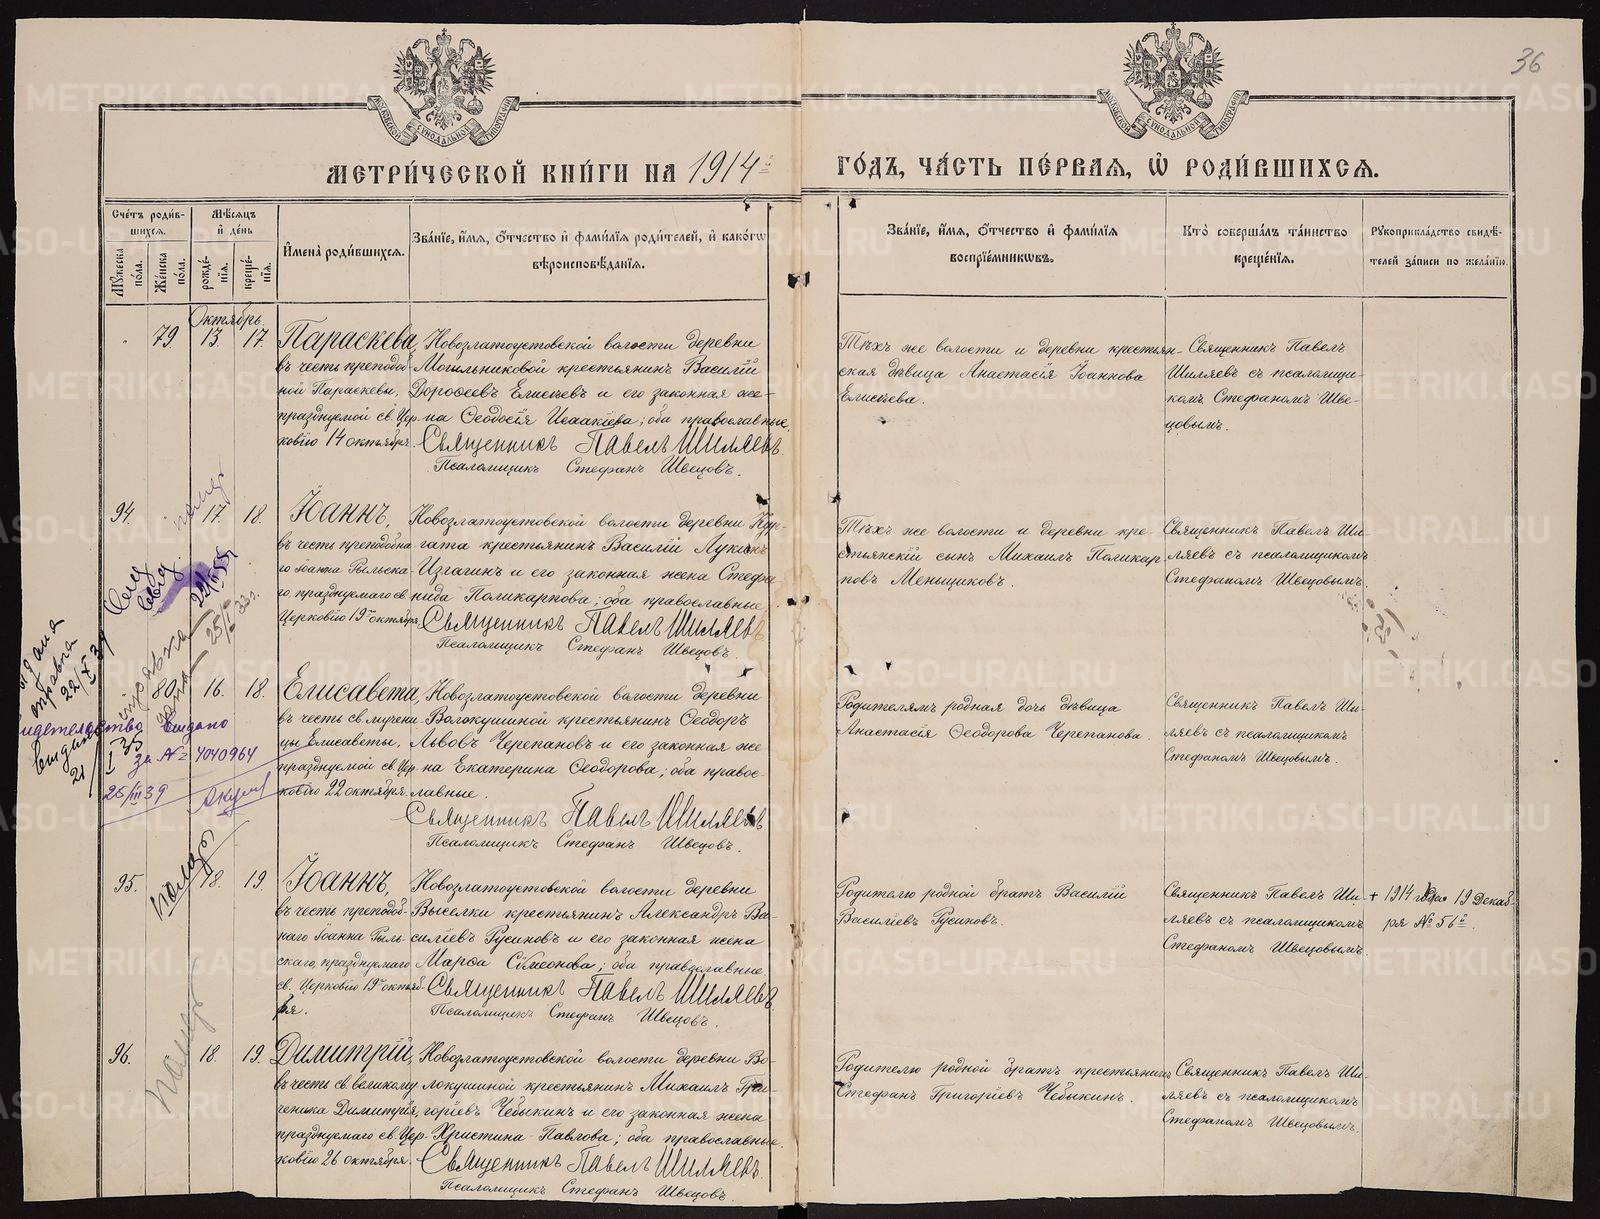 36
МЕТРИ́ЧЕСКОЙ КНИ́ГИ НА 1914й
ГО́ДЪ, ЧА́СТЬ ПЕ́РВАЯ, Ѡ РОДИ́ВШИХСЯ.
Сче́тъ роди́в-
шихся.
Мѣ́сяцъ
и҆ де́нь
Мꙋ́жеска
по́ла.
Же́нска
по́ла.
рожде́-
нїя.
креще́-
нїя.
И҆мена̀ роди́вшихся.
Зва́нїе, и҆́мя, ѻ҆́тчество и҆ фами́лїя роди́телей, и҆ како́гѡ
вѣроисповѣ́данїя.
Зва́нїе, и҆́мя, ѻ҆́тчество и҆ фами́лїя
воспрїе́мникѡвъ.
Кто̀ соверша́лъ та́инство
креще́нїя.
Рꙋкоприкла́дство свидѣ́-
телей за́писи по жела́нїю.
Октябрь.
79. 13 17.
Параскева,
въ честь преподоб-
ной Параскевы,
празднуемой св. Цер-
ковію 14 октября.
Новозлатоустовской волости деревни
Могильниковой крестьянинъ Василій
Дороѳеевъ Елисѣевъ и его законная же-
на Ѳеодосія Исаакіева; оба православные.
Священникъ Павелъ Шиляевъ.
Псаломщикъ Стефанъ Швецовъ.
Тѣхъ же волости и деревни крестьян-
ская дѣвица Анастасія Іоаннова
Елисѣева.
Священникъ Павелъ
Шиляевъ съ псаломщи-
комъ Стефаномъ Шве-
цовымъ.
94. 17. 18.
Іоаннъ,
въ честь преподобна-
го Іоанна Рыльска-
го, празднуемаго св.
Церковію 19го октября.
Новозлатоустовской волости деревни
крестьянинъ Василій Лукинъ
Изгагинъ и его законная жена Стефа-
нида Поликарпова; оба православные.
Священникъ Павелъ Шиляевъ
Псаломщикъ Стефанъ Швецовъ.
Тѣхъ же волости и деревни кре-
стьянскій сынъ Михаилъ Поликар-
повъ Меньщиковъ.
Священникъ Павелъ Ши-
ляевъ съ псаломщикомъ
Стефаномъ Швецовымъ.
80. 16. 18.
Елисавета,
въ честь св. мучени-
цы Елисаветы,
празднуемой св. Цер-
ковію 22 октября.
Новозлатоустовской волости деревни
Волокушиной крестьянинъ Ѳеодоръ
Львовъ Черепановъ и его законная же-
на Екатерина Ѳеодорова; оба правос-
лавные.
Священникъ Павелъ Шиляевъ
Псаломщикъ Стефанъ Швецовъ.
Родителямъ родная дочь дѣвица
Анастасія Ѳеодорова Черепанова.
Священникъ Павелъ Ши-
ляевъ съ псаломщикомъ
Стефаномъ Швецовымъ.
22/X 39
выдано
за № 4040964
25/III 39
95. 18. 19.
Іоаннъ,
въ честь преподоб-
наго Іоанна Рыль-
скаго, празднуемаго
св. Церковію 19го октяб-
ря.
Новозлатоустовской волости деревни
Выселки крестьянинъ Александръ Ва-
силіевъ Русиновъ и его законная жена
Марѳа Сѵмеонова; оба православные.
Священникъ Павелъ Шиляевъ
Псаломщикъ Стефанъ Швецовъ.
Родителю родной братъ Василій
Василіевъ Русиновъ.
Священникъ Павелъ Ши-
ляевъ съ псаломщикомъ
Стефаномъ Швецовымъ.
+ 1914 года 19 Декаб-
ря № 56й.
96. 18. 19.
Димитрій,
въ честь св. великому-
ченика Димитрія,
празднуемаго св. Цер-
ковію 26 октября.
Новозлатоустовской волости деревни Во-
локушиной крестьянинъ Михаилъ Гри-
горіевъ Чебыкинъ и его законная жена
Христина Павлова; оба православные.
Священникъ Павелъ Шиляевъ.
Псаломщикъ Стефанъ Швецовъ.
Родителю родной братъ крестьянинъ
Стефанъ Григоріевъ Чебыкинъ.
Священникъ Павелъ Ши-
ляевъ съ псаломщикомъ
Стефаномъ Швецовымъ.
METRIKI.GASO-URAL.RU